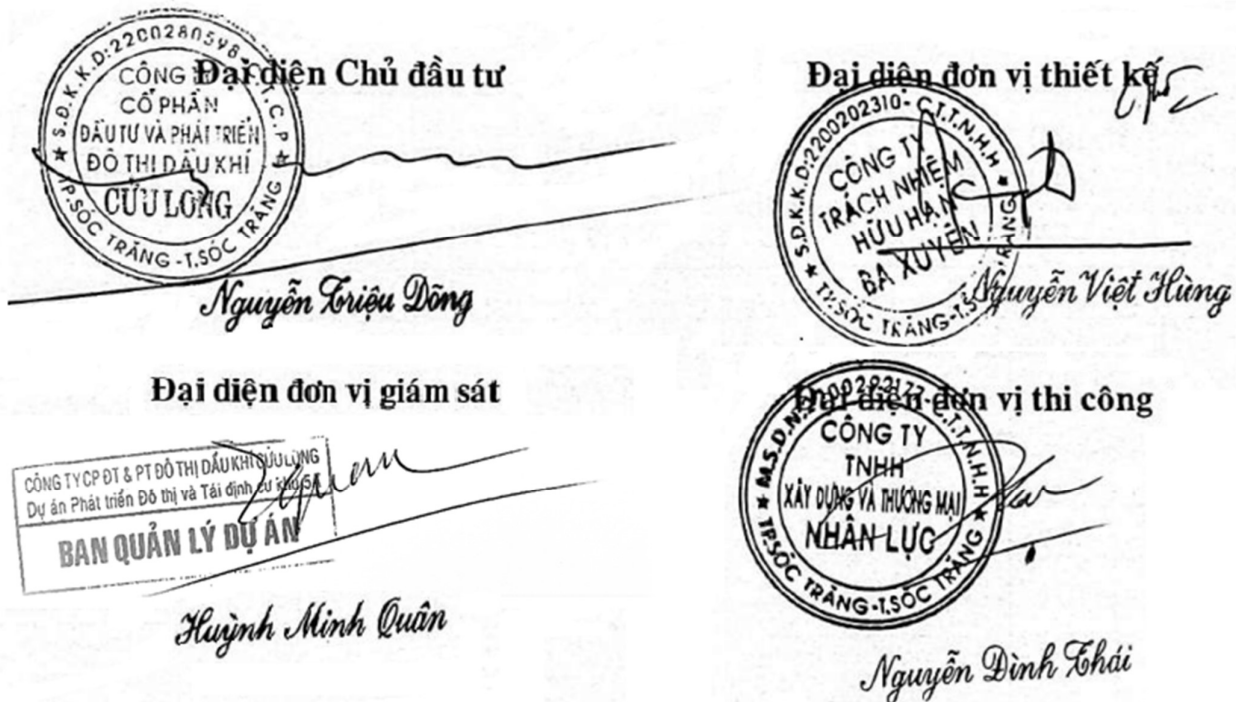 Đại diện Chủ đầu tư
S.Đ.K.K.D:2200280598-C.T.C.P
CÔNG TY
CỔ PHẦN
ĐẦU TƯ VÀ PHÁT TRIỂN
ĐÔ THỊ DẦU KHÍ
CỬU LONG
TP.SÓC TRĂNG-T.SÓC TRĂNG
Nguyễn Triệu Dõng
Đại diện đơn vị thiết kế
S.D.K.K.D:2200202310-C.T.T.N.H.H
CÔNG TY
TRÁCH NHIỆM
HỮU HẠN
BA XUYÊN
TP.SÓC TRĂNG-T.SÓC TRĂNG
Nguyễn Việt Hùng
Đại diện đơn vị giám sát
CÔNG TY CP ĐT & PT ĐÔ THỊ DẦU KHÍ CỬU LONG
Dự án Phát triển Đô thị và Tái định cư khu 5A
BAN QUẢN LÝ DỰ ÁN
Huỳnh Minh Quân
Đại diện đơn vị thi công
CÔNG TY
TNHH
XÂY DỰNG VÀ THƯƠNG MẠI
NHÂN LỰC
TP.SÓC TRĂNG-T.SÓC TRĂNG
Nguyễn Đình Thái